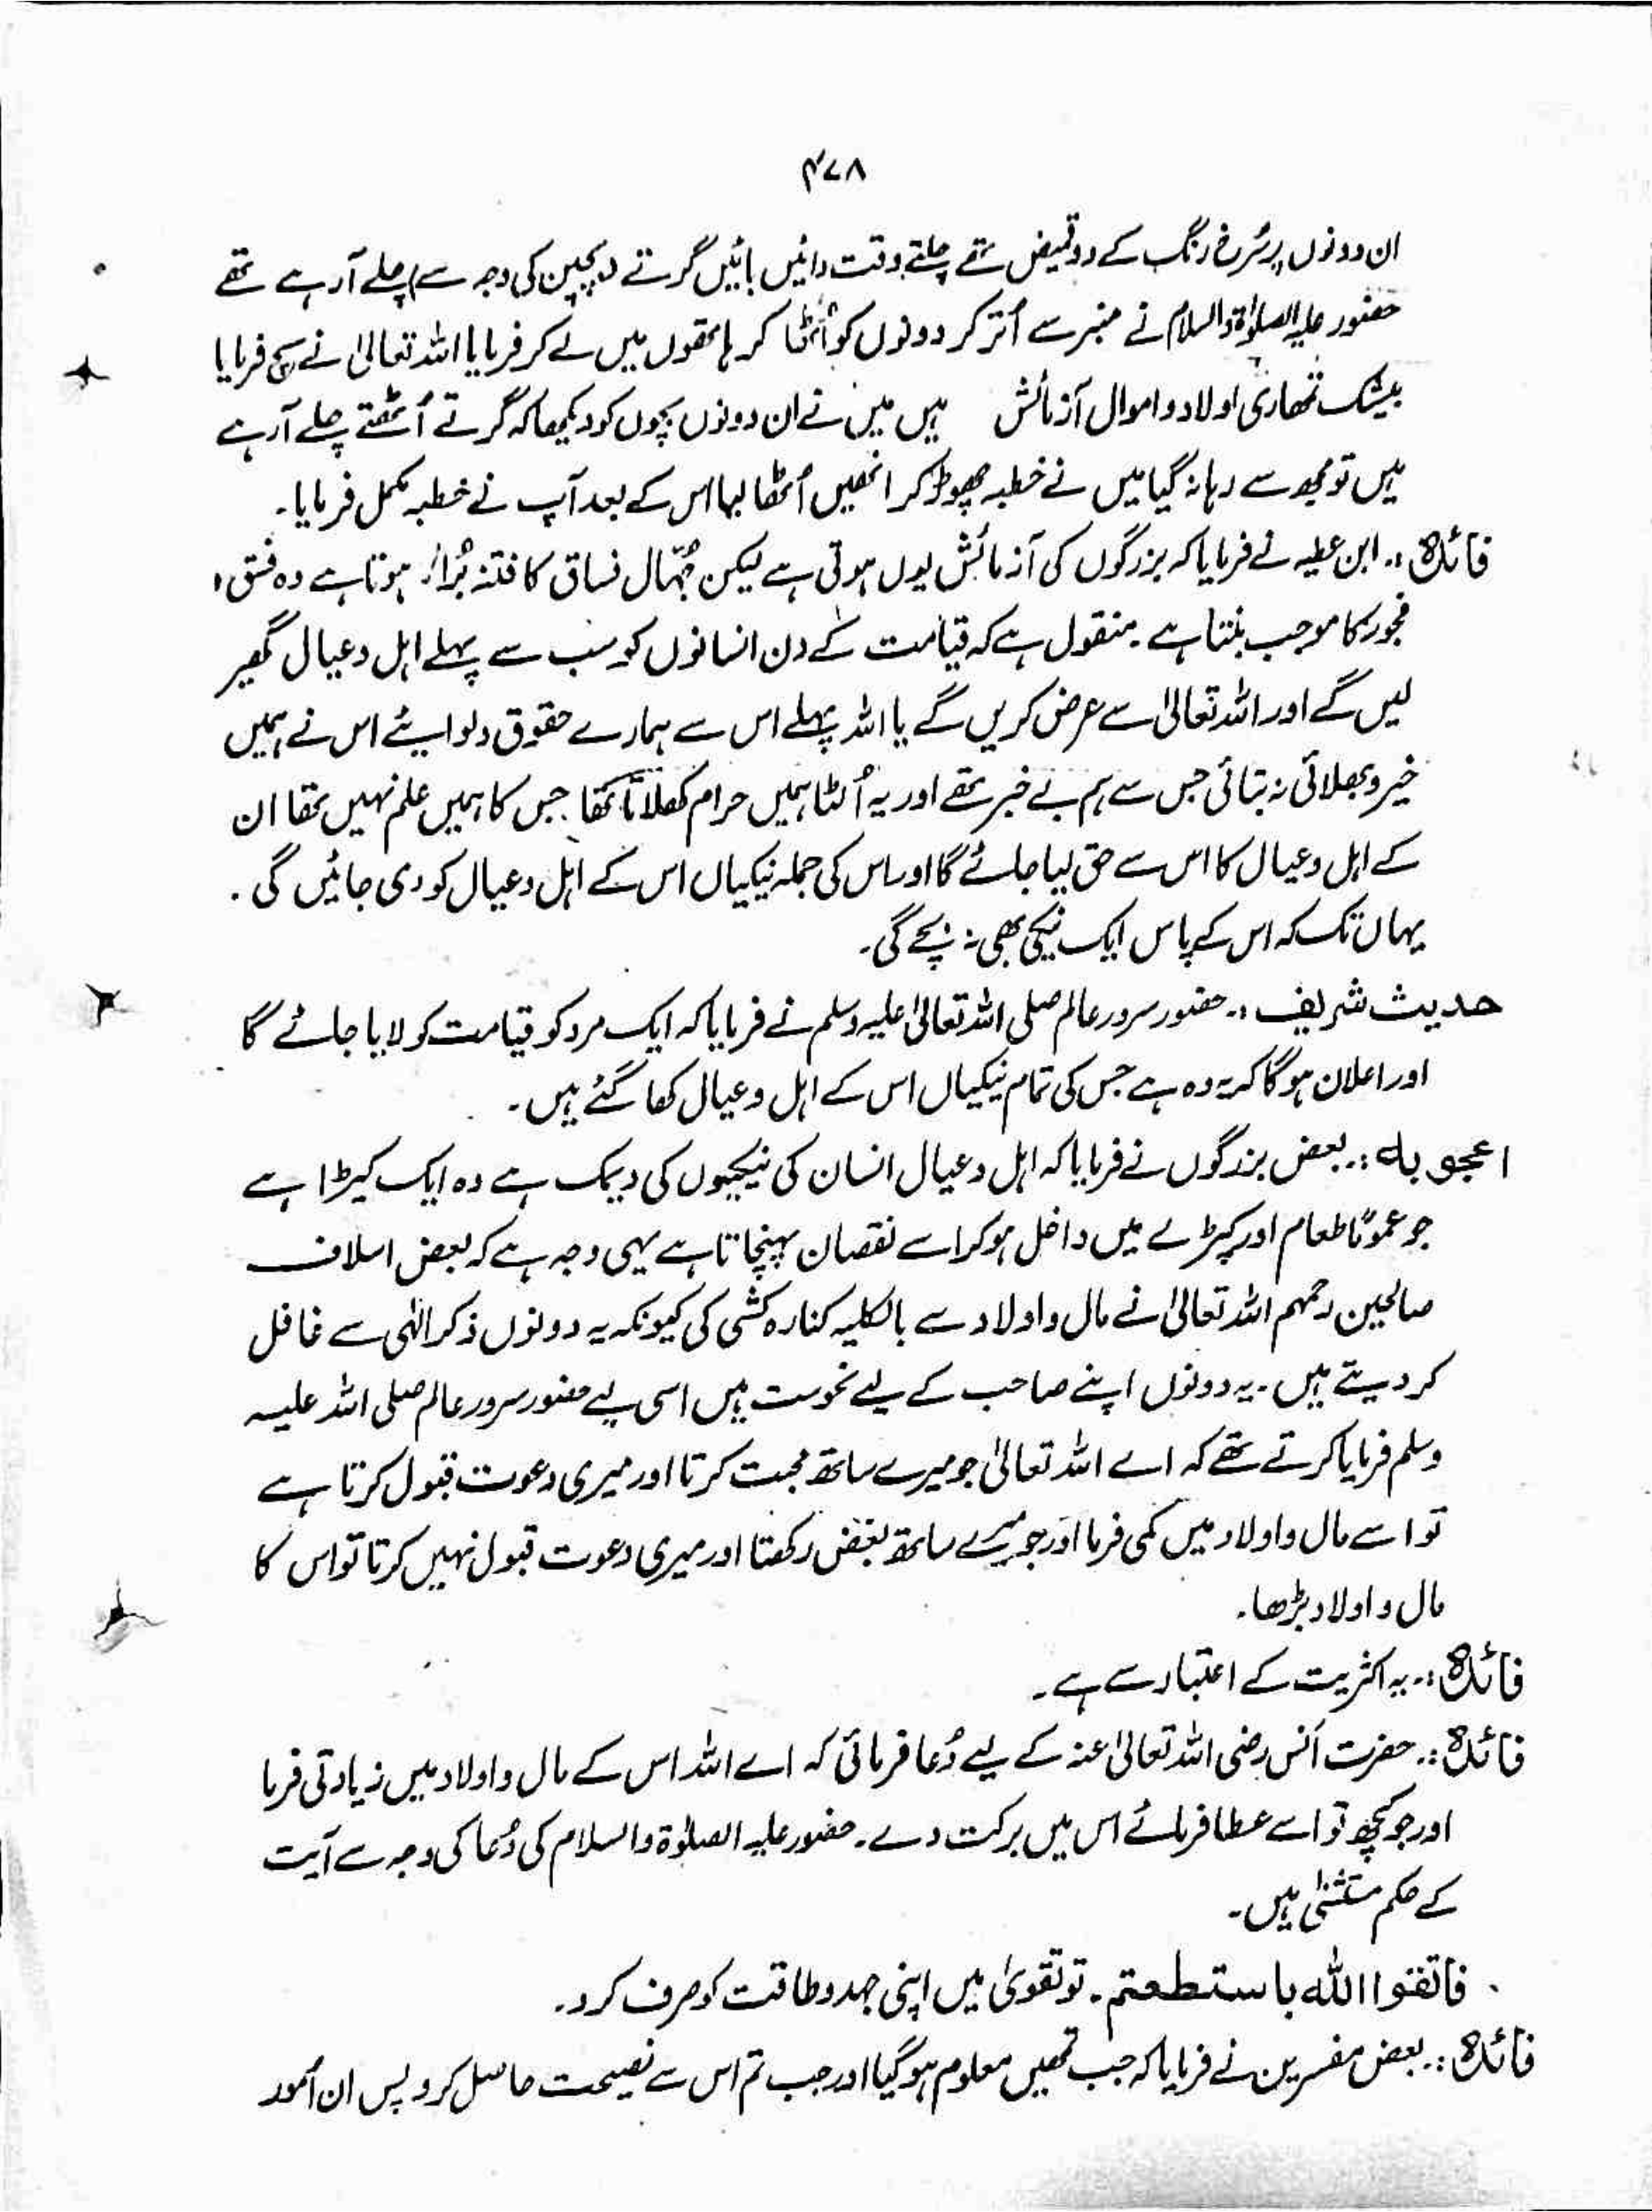 ۴۷۸
ان دونوں پر سُرخ رنگ کے دو قمیض تھے چلتے وقت دائیں بائیں گرتے (بچپن کی وجہ سے) چلے آ رہے تھے
حضور علیہ الصلوٰۃ والسلام نے منبر سے اُتر کر دونوں کو اُٹھا کر ہاتھوں میں لے کر فرمایا اللہ تعالیٰ نے سچ فرمایا
بیشک تمھاری اولاد و اموال آزمائش ہیں میں نے ان دونوں بچوں کو دیکھا کہ گرتے اُٹھتے چلے آ رہے
ہیں تو مجھ سے رہا نہ گیا میں نے خطبہ چھوڑ کر انھیں اُٹھا لیا اس کے بعد آپ نے خطبہ مکمل فرمایا۔
فائدہ :۔ ابن عطیہ نے فرمایا کہ بزرگوں کی آزمائش یوں ہوتی ہے لیکن جُہّال فساق کا فتنہ بُرا ہوتا ہے وہ فسق و
فجور کا موجب بنتا ہے ۔ منقول ہے کہ قیامت کے دن انسانوں کو سب سے پہلے اہل و عیال گھیر
لیں گے اور اللہ تعالیٰ سے عرض کریں گے یا اللہ پہلے اس سے ہمارے حقوق دلوایئے اس نے ہمیں
خیر و بھلائی نہ بتائی جس سے ہم بے خبر تھے اور یہ اُلٹا ہمیں حرام کھلاتا تھا جس کا ہمیں علم نہیں تھا ان
کے اہل و عیال کا اس سے حق لیا جائے گا اور اس کی جملہ نیکیاں اس کے اہل و عیال کو دی جائیں گی ۔
یہاں تک کہ اس کے پاس ایک نیکی بھی نہ بچے گی۔
حدیث شریف :۔ حضور سرور عالم صلی اللہ تعالیٰ علیہ وسلم نے فرمایا کہ ایک مرد کو قیامت کو لایا جائے گا
اور اعلان ہو گا کہ یہ وہ ہے جس کی تمام نیکیاں اس کے اہل و عیال کھا گئے ہیں ۔
اعجوبہ :۔ بعض بزرگوں نے فرمایا کہ اہل و عیال انسان کی نیکیوں کی دیمک ہے وہ ایک کیڑا ہے
جو عموماً طعام اور کپڑے میں داخل ہو کر اسے نقصان پہنچاتا ہے یہی وجہ ہے کہ بعض اسلاف
صالحین رحمہم اللہ تعالیٰ نے مال و اولاد سے بالکلیہ کنارہ کشی کی کیونکہ یہ دونوں ذکر الٰہی سے غافل
کر دیتے ہیں ۔ یہ دونوں اپنے صاحب کے لیے نحوست ہیں اسی لیے حضور سرور عالم صلی اللہ علیہ
وسلم فرمایا کرتے تھے کہ اے اللہ تعالیٰ جو میرے ساتھ محبت کرتا اور میری دعوت قبول کرتا ہے
تو اسے مال و اولاد میں کمی فرما اور جو میرے ساتھ بغض رکھتا اور میری دعوت قبول نہیں کرتا تو اس کا
مال و اولاد بڑھا۔
فائدہ :۔ یہ اکثریت کے اعتبار سے ہے ۔
فائدہ :۔ حضرت اَنس رضی اللہ تعالیٰ عنہ کے لیے دُعا فرمائی کہ اے اللہ اس کے مال و اولاد میں زیادتی فرما
اور جو کچھ تو اسے عطا فرمائے اس میں برکت دے ۔ حضور علیہ الصلوٰۃ والسلام کی دُعا کی وجہ سے آیت
کے حکم مستثنیٰ ہیں ۔
فاتقوا اللہ باستطعتم ۔ تو تقویٰ میں اپنی جہد و طاقت کو صرف کرو ۔
فائدہ :۔ بعض مفسرین نے فرمایا کہ جب تمھیں معلوم ہو گیا اور جب تم اس سے نصیحت حاصل کرو پس ان اُمور